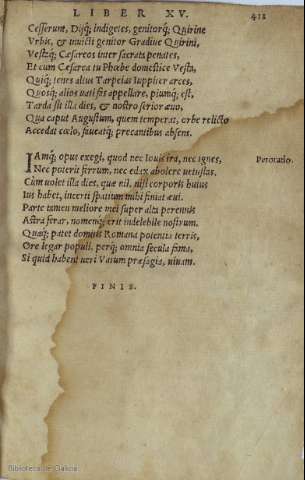 LIBER XV.
411
Cesserunt, Dijq; indigetes, genitorq; Quirine
Vrbis, & inuicti genitor Gradiue Quirini,
Vestaq; Cæsareos inter sacrata penates,
Et cum Cæsarea tu Phœbe domestice Vesta,
Quiq; tenes altus Tarpeias Iuppiter arces,
Quosq; alios uati fas appellare, piumq; est,
Tarda sit illa dies, & nostro serior æuo,
Qua caput Augustum, quem temperat, orbe relicto
Accedat cœlo, faueatq; precantibus absens.
IAmq; opus exegi, quod nec Iouis ira, nec ignes,
Peroratio.
Nec poterit ferrum, nec edax abolere uetustas.
Cùm uolet illa dies, quæ nil nisi corporis huius
Ius habet, incerti spatium mihi finiat æui.
Parte tamen meliore mei super alta perennis
Astra ferar, nomenq; erit indelebile nostrum.
Quaq; patet domitis Romana potentia terris,
Ore legar populi, perq; omnia secula fama,
Si quid habent ueri Vatum præsagia, uiuam.
FINIS.
Biblioteca de Galicia